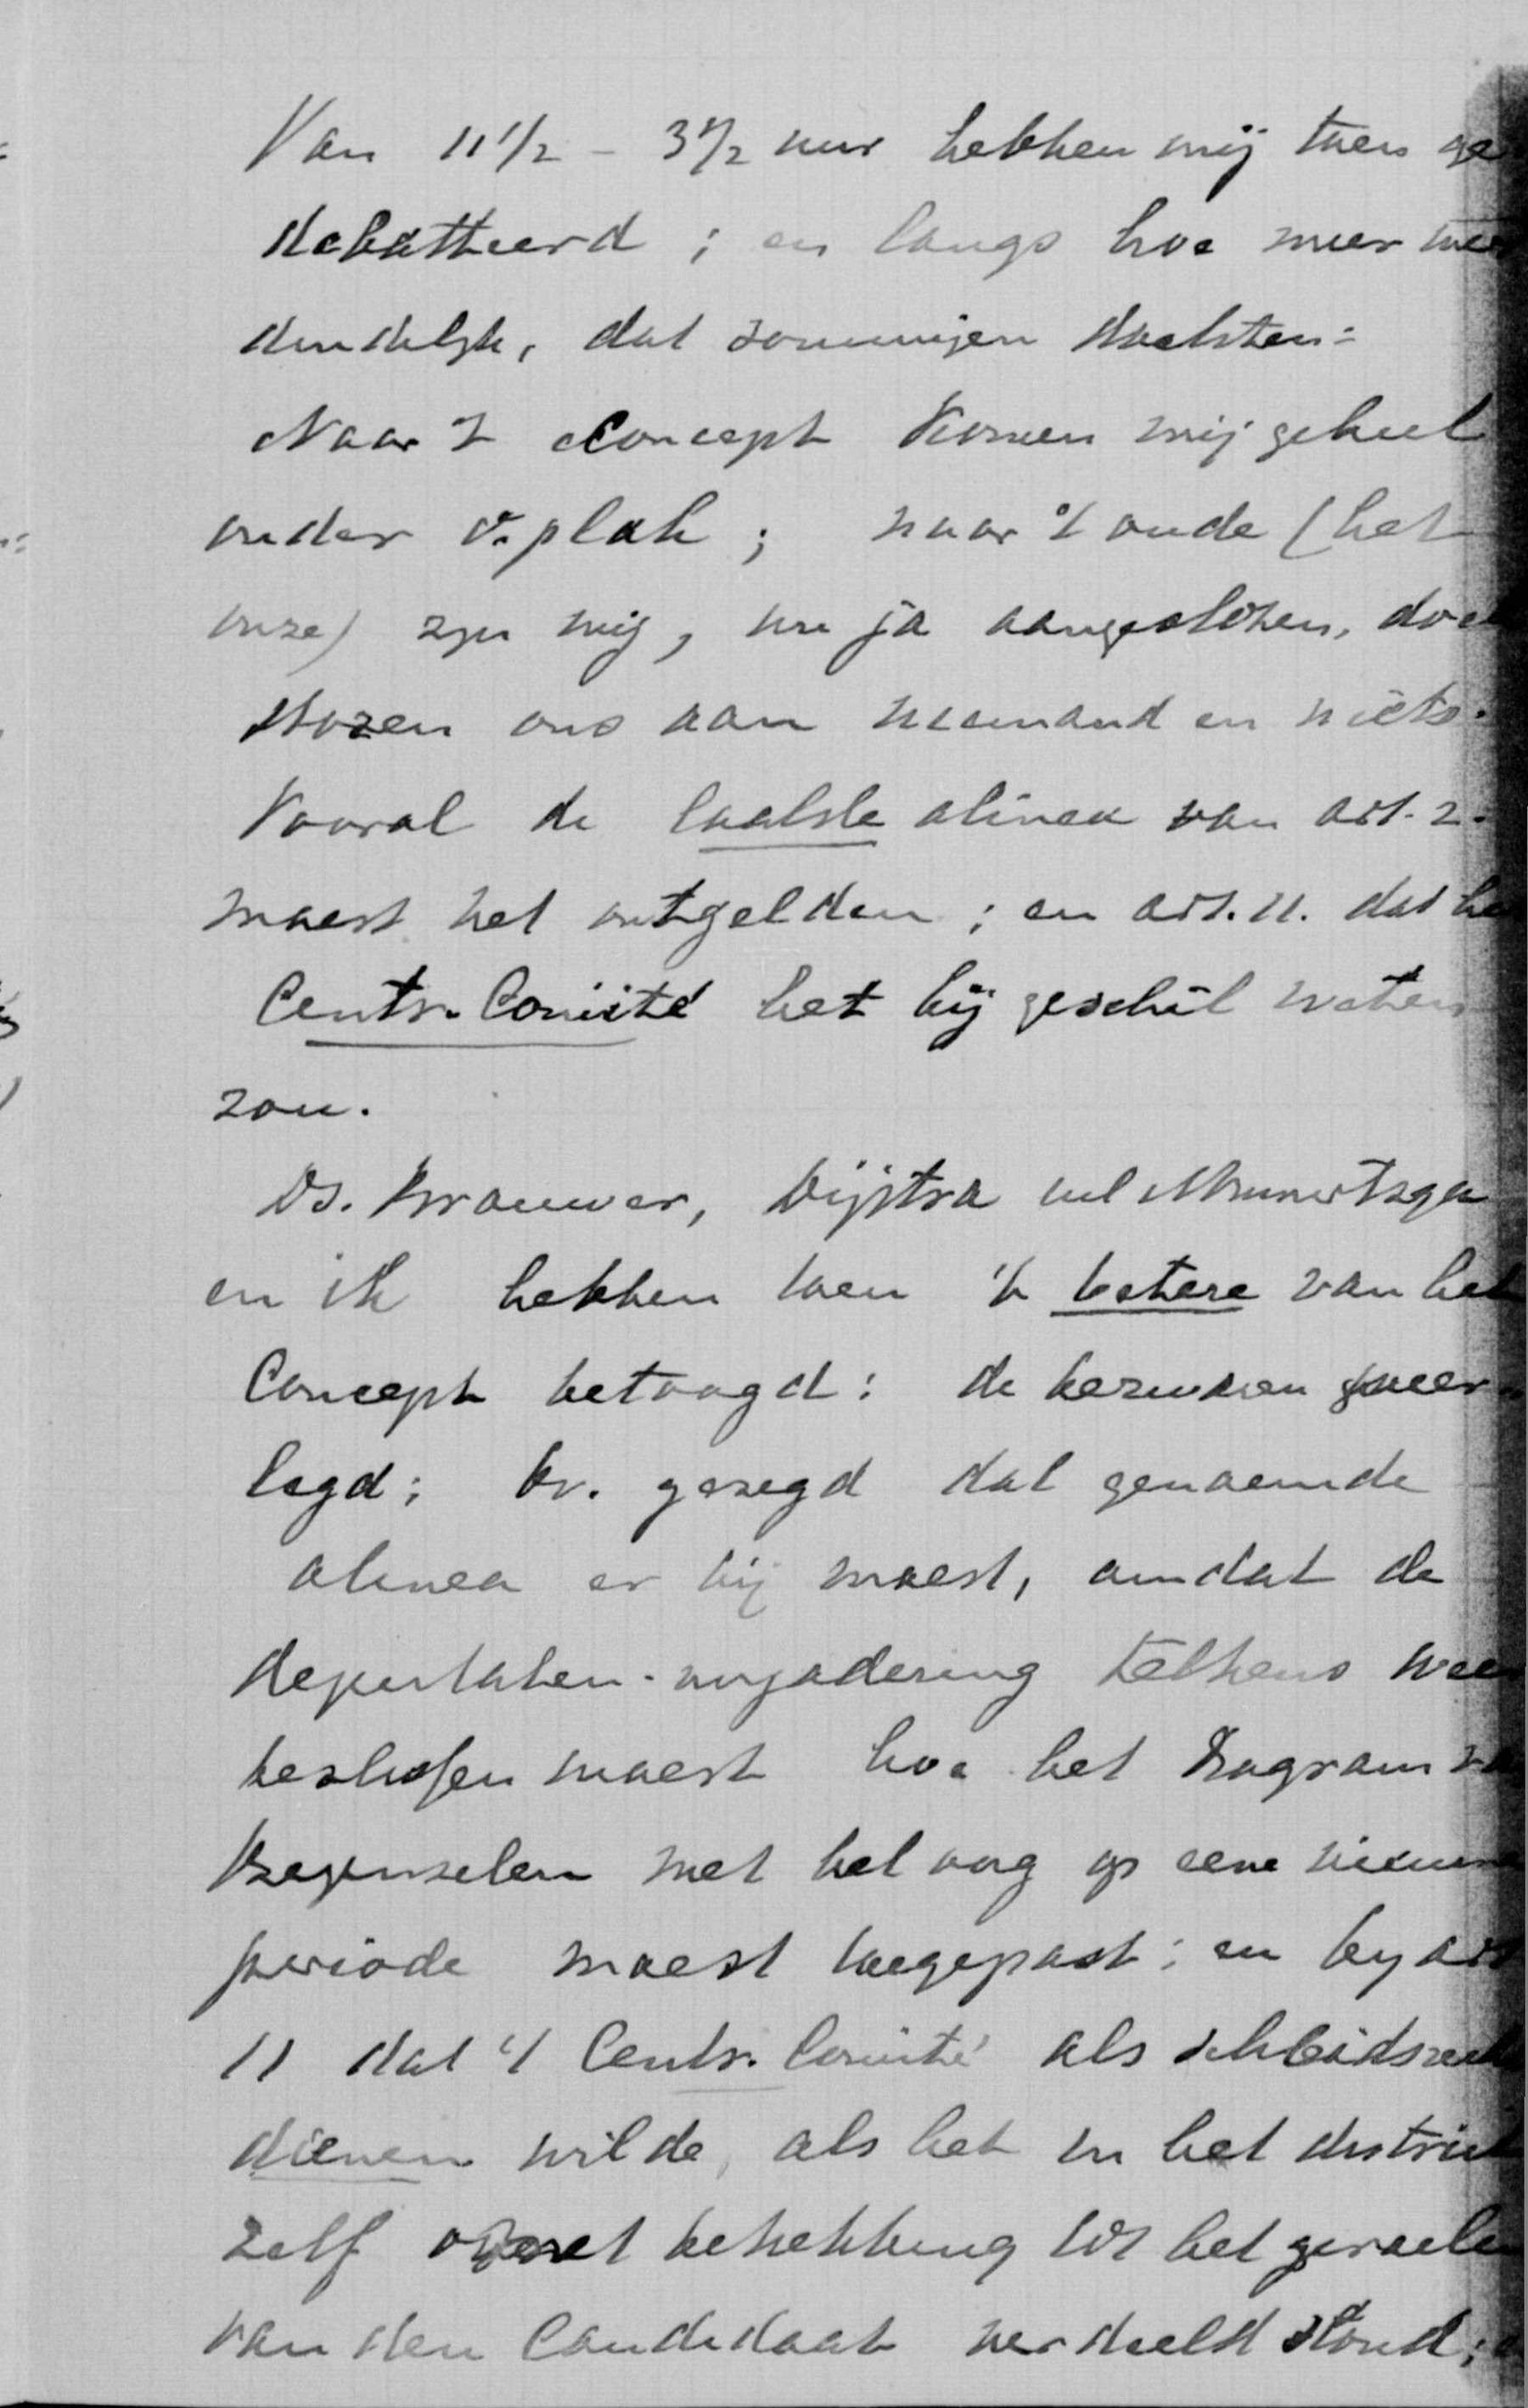 Van 11 1/2 - 3 1/2 uur hebben wij toen ge
debatteerd ; en langs hoe meer wer
duidelijk, dat sommigen dachten:
Naar 't Concept komen wij geheel
onder de plak ; naar 't oude (het
onze) zijn wij, nu ja aangesloten, doch
storen ons aan niemand en niets.
Vooral de laatste alinea van art. 2.
moest het ontgelden ; en art. 11. dat he
Centr. Comité het bij geschil weten
zou.
Ds. Brouwer, Dijstra uit
en ik hebben toen 't betere van het
Concept betoogd : de bezwaren weer
legd ; bv. gezegd dat genoemde
alinea er bij moest, omdat de
deputaten-vergadering telkens weer
beslissen moest hoe het Program va
beginselen met het oog op eene nieuwe
periode moest toegepast ; en bij art
11 dat 't Centr. Comité als scheidsrech
dienen wilde, als het in het district
zelf met betrekking tot het
van den Candidaat verdeeld stond ;